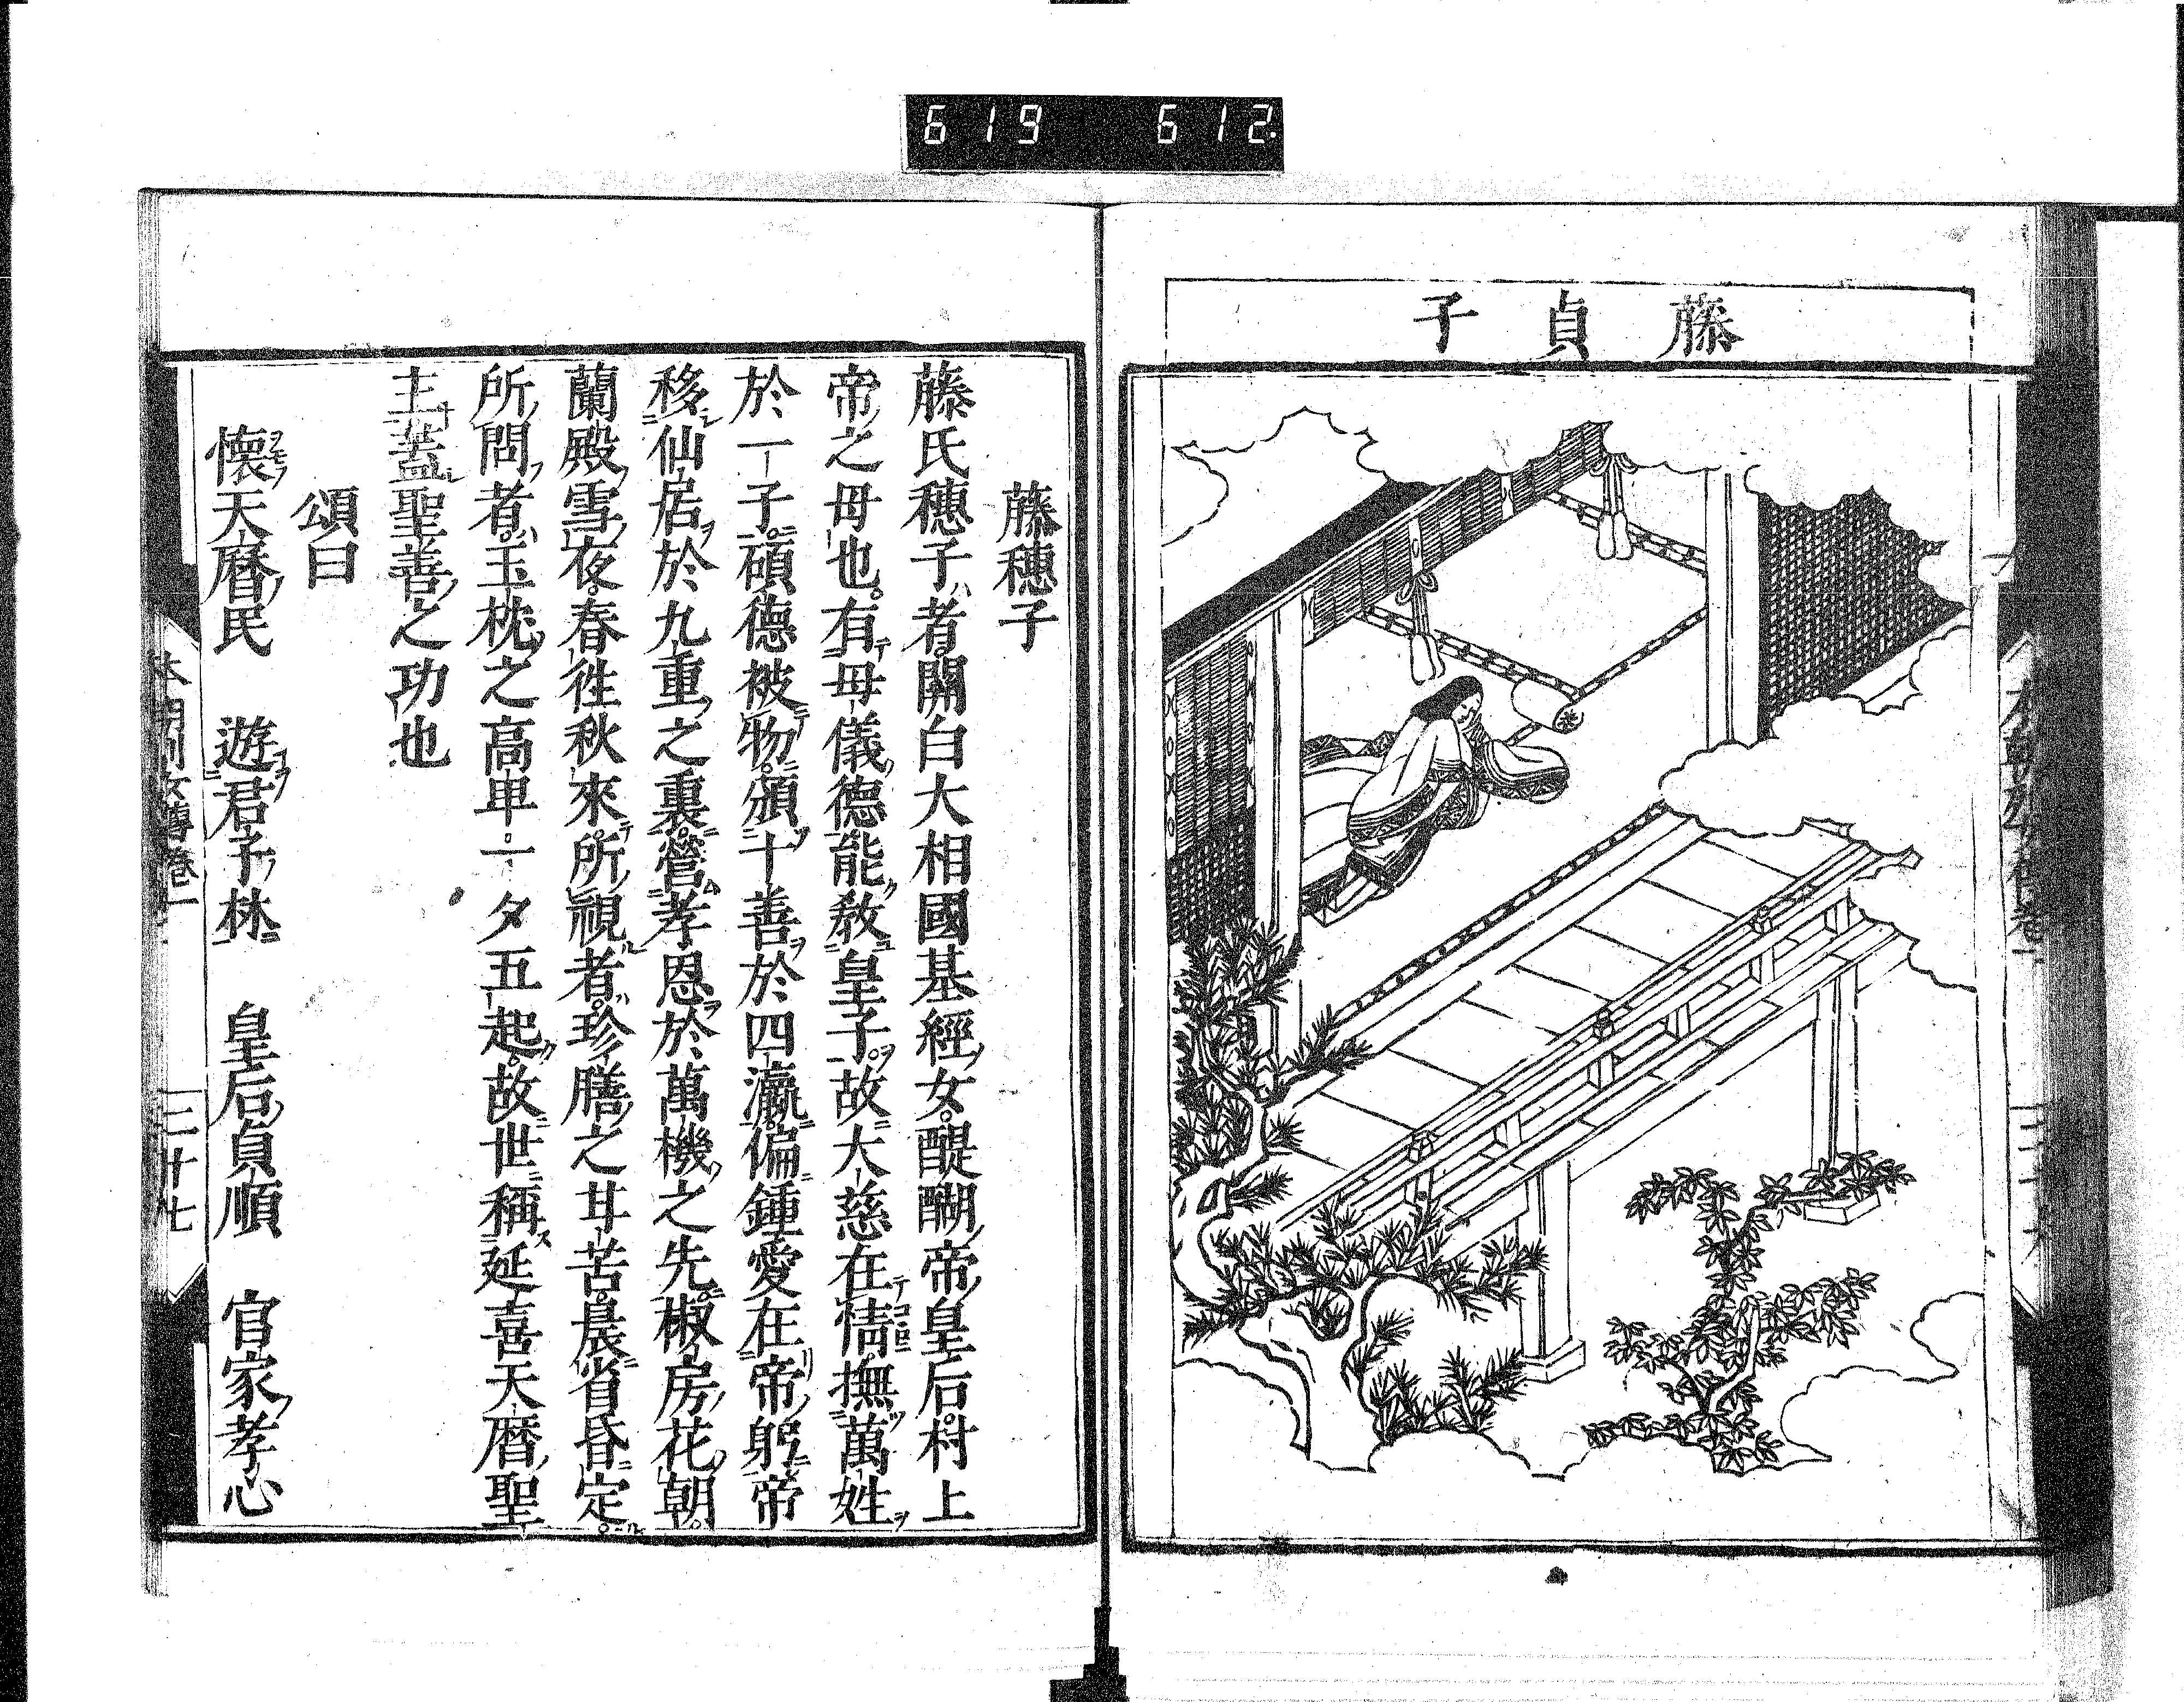 619 612
藤貞子
藤穗子
藤氏穗子者關白大相國基經女醍醐帝皇后村上
帝之母也有母儀德能敎皇子故大慈在情撫萬姓
於一子碩德被物頒十善於四瀛偏鍾愛在帝躬帝
移仙居於九重之裏營孝恩於萬機之先椒房花朝
蘭殿雪夜春徃秋來所視者珍膳之甘苦晨省昏定
所問者玉枕之高卑一夕五起故世稱延喜天曆聖
主蓋聖善之功也
頌曰
懷天曆民　遊君子林　皇后貞順　官家孝心
本朝列女傳卷一　三十七